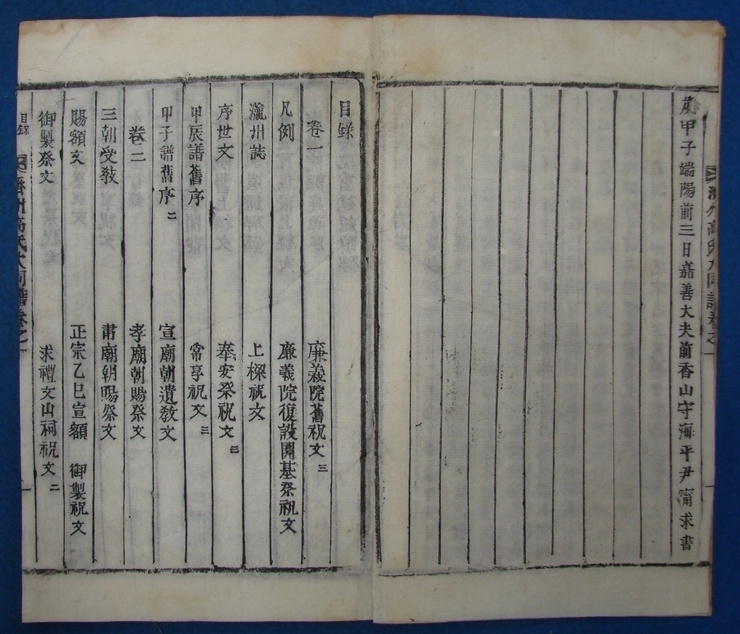 歲甲子端陽前三日嘉善大夫前香山守海平尹甯求書
目錄
卷一 廉義院舊祝文 三
凡例 廉義院復設開基祭祝文
瀛州誌 上樑祝文
序世文 奉安祭祝文 三
甲辰譜舊序 常享祝文 三
甲子譜舊序 二 宣廟朝遺敎文
卷二 孝廟朝賜祭文
三朝受敎 肅廟朝賜祭文
賜額文 正宗乙巳宣額 御製祝文
御製祭文 求禮文山祠祝文 二
目錄 濟州高氏大同譜卷之一